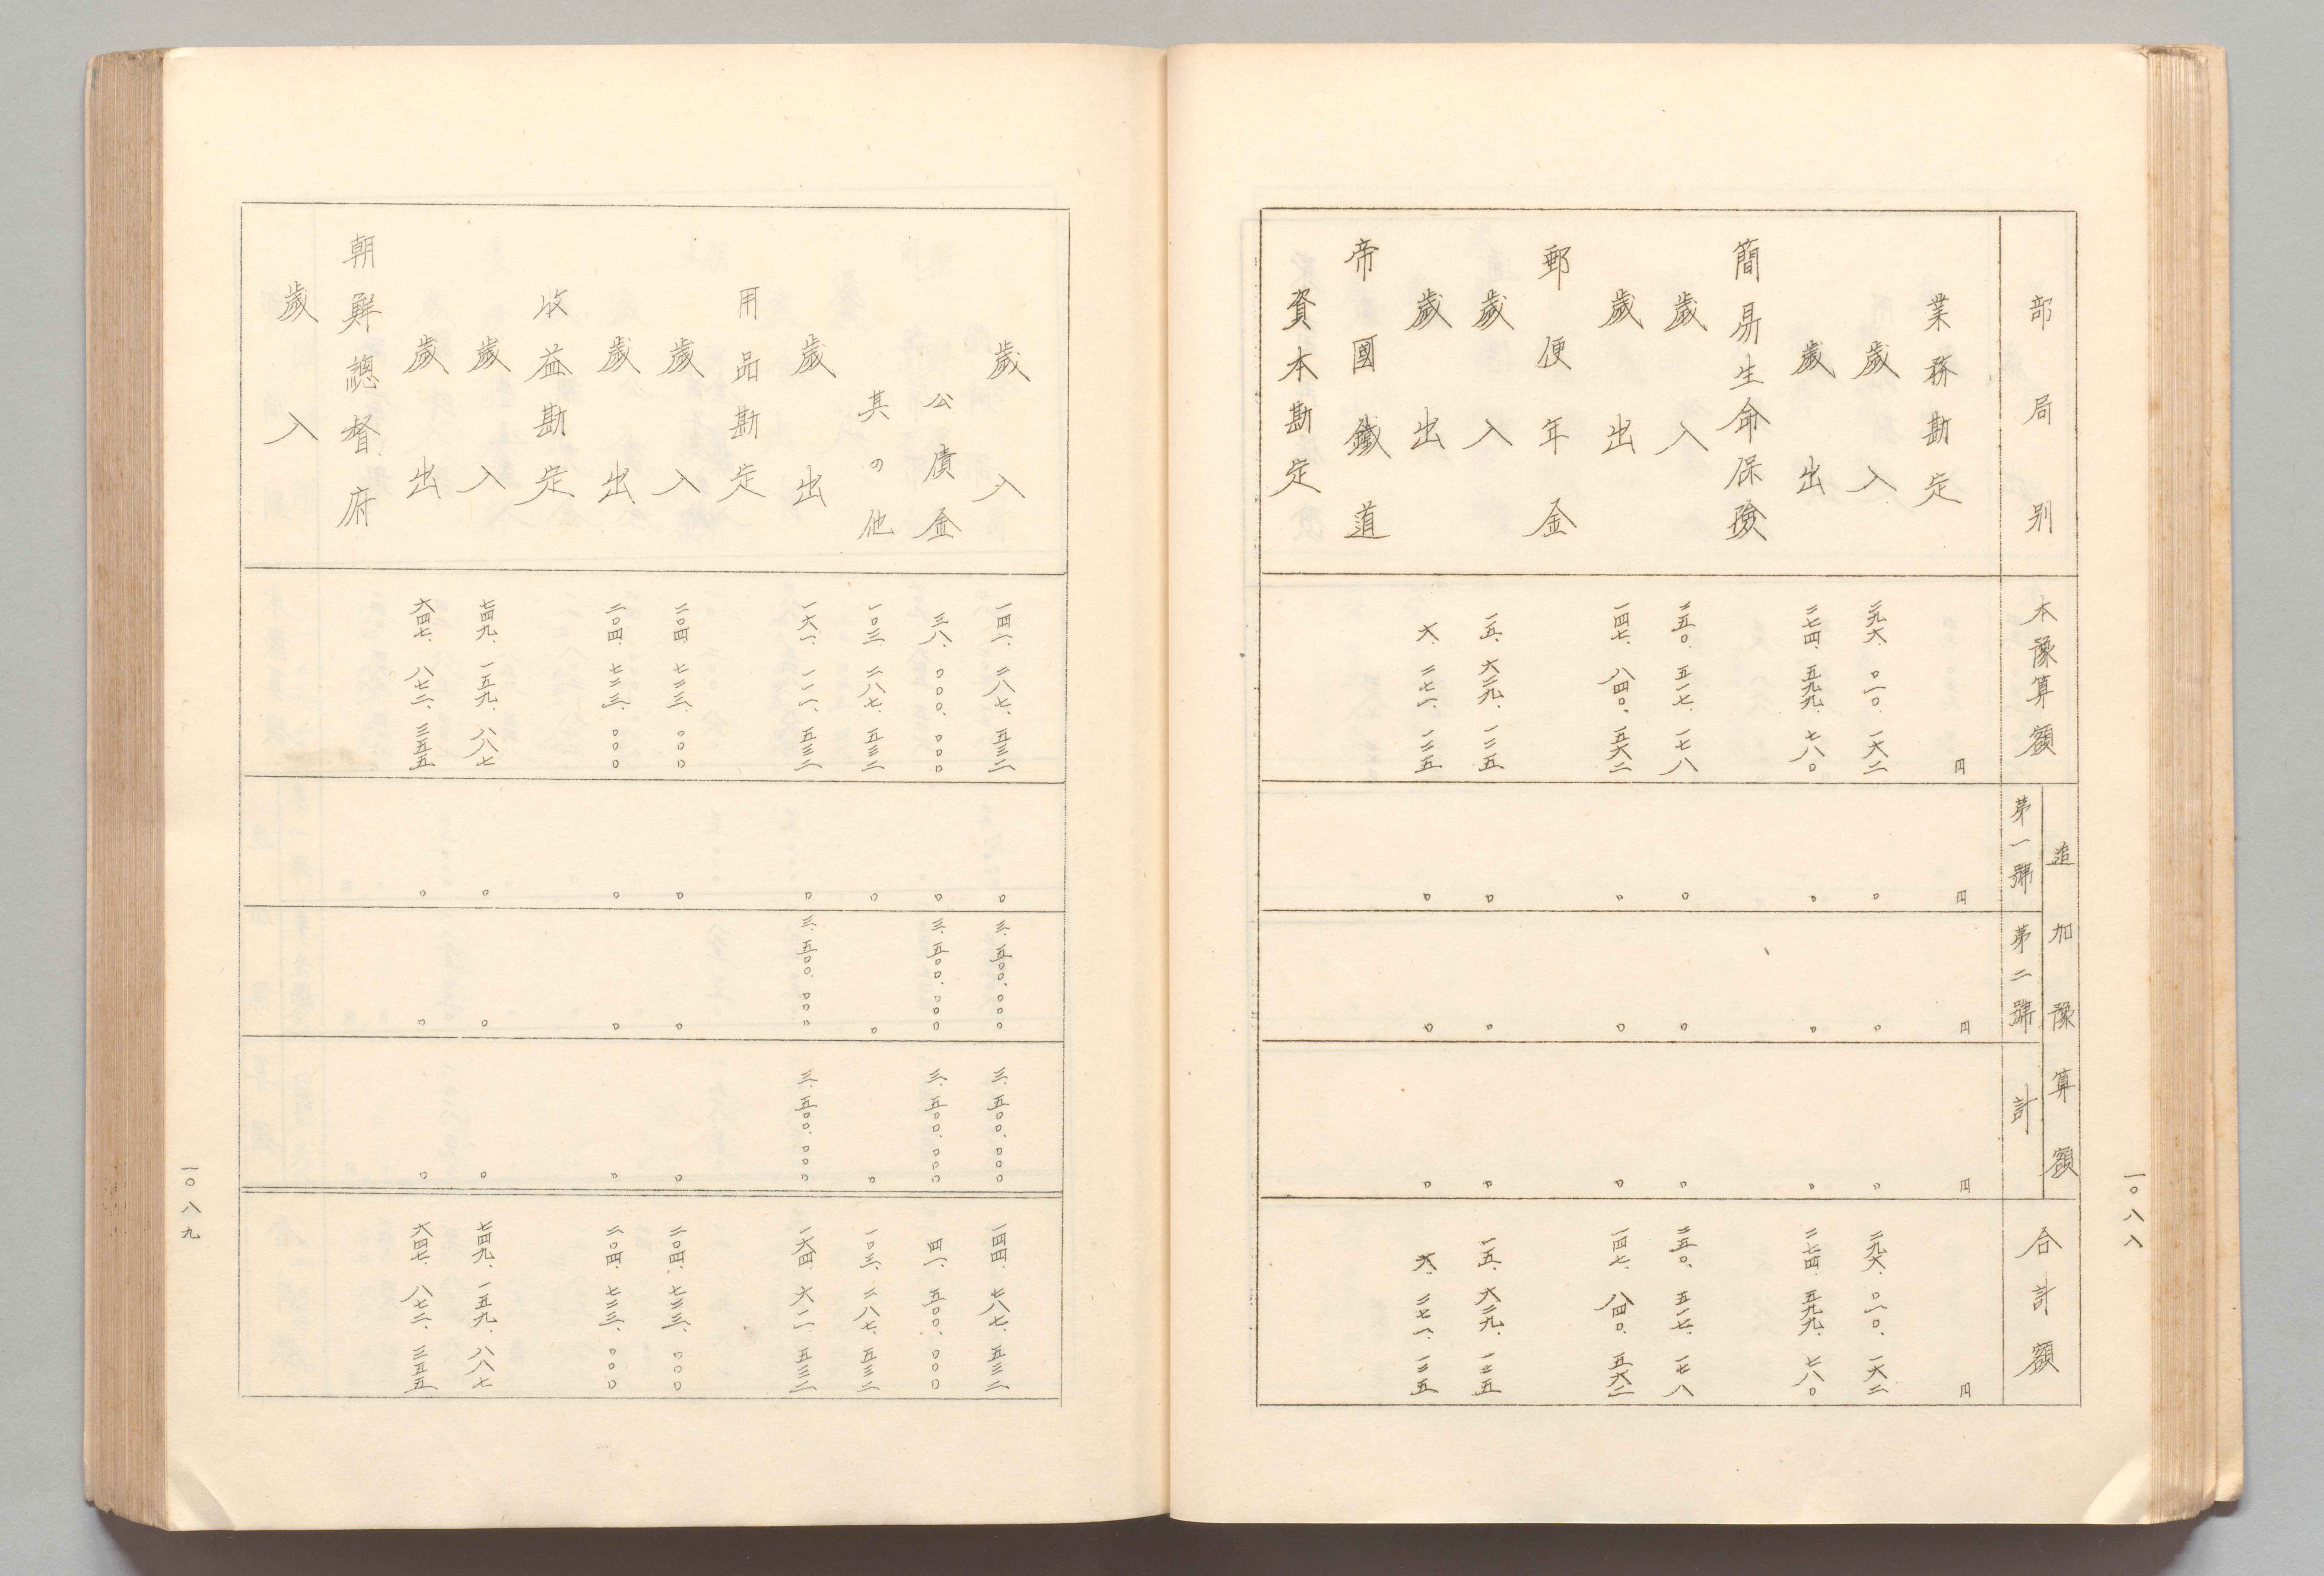 部局別 本豫算額 追加豫算額 第一號 第二號 計 合計額
業務勘定 円 円 円 円 円
歲入 二九六、〇一〇、一六二 〇 〇 〇 二九六、〇一〇、一六二
歲出 二七四、五九九、七八〇 〇 〇 〇 二七四、五九九、七八〇
簡易生命保險
歲入 二五〇、五一七、一七八 〇 〇 〇 二五〇、五一七、一七八
歲出 一四七、八四〇、五六二 〇 〇 〇 一四七、八四〇、五六二
郵便年金
歲入 一五、六二九、一二五 〇 〇 〇 一五、六二九、一二五
歲出 六、二七一、一二五 〇 〇 〇 六、二七一、一二五
帝國鐵道
資本勘定
一〇八八
歲入 一四一、二八七、五三二 〇 三、五〇〇、〇〇〇 三、五〇〇、〇〇〇 一四四、七八七、五三二
公債金 三八、〇〇〇、〇〇〇 〇 三、五〇〇、〇〇〇 三、五〇〇、〇〇〇 四一、五〇〇、〇〇〇
其の他 一〇三、二八七、五三二 〇 〇 〇 一〇三、二八七、五三二
歲出 一六一、一一一、五三二 〇 三、五〇〇、〇〇〇 三、五〇〇、〇〇〇 一六四、六一一、五三二
用品勘定
歲入 二〇四、七二三、〇〇〇 〇 〇 〇 二〇四、七二三、〇〇〇
歲出 二〇四、七二三、〇〇〇 〇 〇 〇 二〇四、七二三、〇〇〇
收益勘定
歲入 七四九、一五九、八八七 〇 〇 〇 七四九、一五九、八八七
歲出 六四七、八七二、三五五 〇 〇 〇 六四七、八七二、三五五
朝鮮總督府
歲入
一〇八九